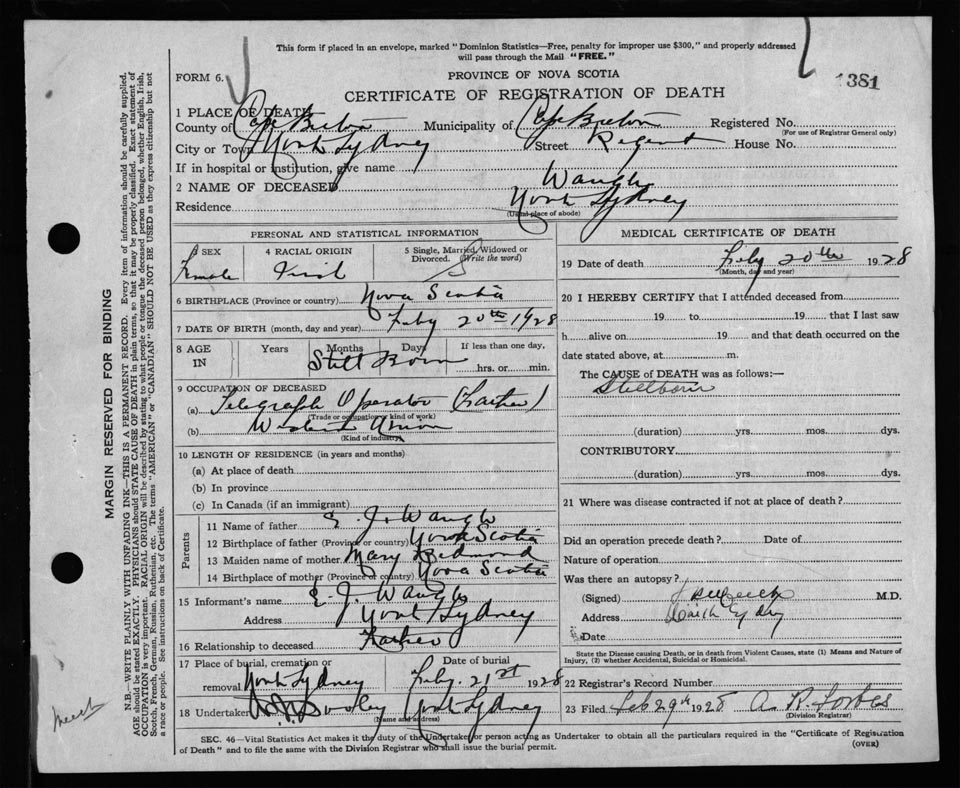 This form if placed in an envelope, marked "Dominion Statistics—Free, penalty for improper use $300," and properly addressed
will pass through the Mail "FREE."
FORM 6.
PROVINCE OF NOVA SCOTIA
1381
CERTIFICATE OF REGISTRATION OF DEATH
1 PLACE OF DEATH
County of Cape Breton Municipality of Cape Breton Registered No.
(For use of Registrar General only)
City or Town North Sydney Street Regent House No.
If in hospital or institution, give name
2 NAME OF DECEASED Waugh
Residence North Sydney
(Usual place of abode)
PERSONAL AND STATISTICAL INFORMATION
3 SEX Female
4 RACIAL ORIGIN Irish
5 Single, Married, Widowed or Divorced. (Write the word) S
6 BIRTHPLACE (Province or country) Nova Scotia
7 DATE OF BIRTH (month, day and year) Feby 20th 1928
8 AGE IN Years Months Days If less than one day,
Still Born
hrs. or min.
9 OCCUPATION OF DECEASED
(a) Telegraph Operator (Father)
(Trade or occupation or kind of work)
(b) Western Union
(Kind of industry)
10 LENGTH OF RESIDENCE (in years and months)
(a) At place of death
(b) In province
(c) In Canada (if an immigrant)
Parents
11 Name of father E. J. Waugh
12 Birthplace of father (Province or country) Nova Scotia
13 Maiden name of mother Mary Redmond
14 Birthplace of mother (Province or country) Nova Scotia
15 Informant's name E. J. Waugh
Address North Sydney
16 Relationship to deceased Father
17 Place of burial, cremation or removal North Sydney
Date of burial Feby. 21st 1928
18 Undertaker North Sydney
(Name and address)
MEDICAL CERTIFICATE OF DEATH
19 Date of death Feby 20th 1928
(Month, day and year)
20 I HEREBY CERTIFY that I attended deceased from
19 to 19 that I last saw
h alive on 19 and that death occurred on the
date stated above, at m.
The CAUSE of DEATH was as follows:—
Stillborn
(duration) yrs. mos. dys.
CONTRIBUTORY
(duration) yrs. mos. dys.
21 Where was disease contracted if not at place of death?
Did an operation precede death? Date of
Nature of operation
Was there an autopsy?
(Signed) M.D.
Address North Sydney
Date
State the Disease causing Death, or in death from Violent Causes, state (1) Means and Nature of
Injury, (2) whether Accidental, Suicidal or Homicidal.
22 Registrar's Record Number
23 Filed Feb 29th 1928 A. R. Forbes
(Division Registrar)
SEC. 46—Vital Statistics Act makes it the duty of the Undertaker or person acting as Undertaker to obtain all the particulars required in the "Certificate of Registration
of Death" and to file the same with the Division Registrar who shall issue the burial permit.
(OVER)
MARGIN RESERVED FOR BINDING
N.B.—WRITE PLAINLY WITH UNFADING INK—THIS IS A PERMANENT RECORD. Every item of information should be carefully supplied.
AGE should be stated EXACTLY. PHYSICIANS should STATE CAUSE OF DEATH in plain terms, so that it may be properly classified. Exact statement of
OCCUPATION is very important. RACIAL ORIGIN will be described by stating to what people or tongue the deceased person belonged, whether English, Irish,
Scotch, French, German, Russian, Ruthenian, etc. The terms "AMERICAN" or "CANADIAN" SHOULD NOT BE USED as they express citizenship but not
a race or people. See instructions on back of Certificate.